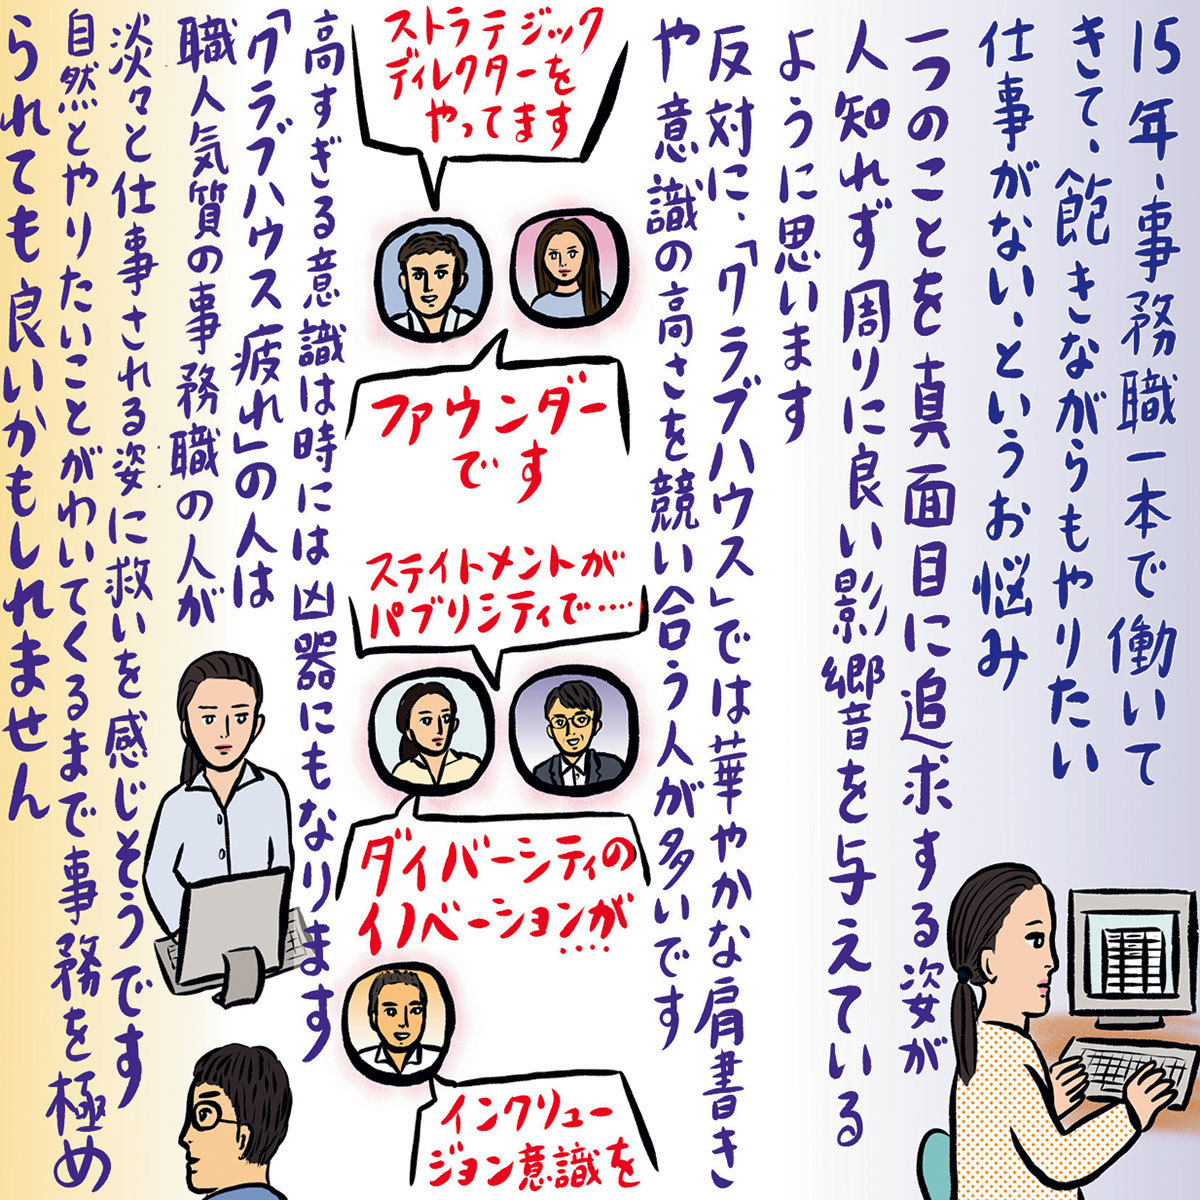 15年、事務職一本で働いて
きて、飽きながらもやりたい
仕事がない、というお悩み
一つのことを真面目に追求する姿が
人知れず周りに良い影響を与えている
ように思います
反対に、「クラブハウス」では華やかな肩書き
や意識の高さを競い合う人が多いです
ストラテジック
ディレクターを
やってます
ファウンダー
です
ステイトメントが
パブリシティで‥‥
ダイバーシティの
イノベーションが‥‥
インクリュー
ジョン意識を
高すぎる意識は時には凶器にもなります
「クラブハウス疲れ」の人は
職人気質の事務職の人が
淡々と仕事される姿に救いを感じそうです
自然とやりたいことがわいてくるまで事務を極め
られても良いかもしれません